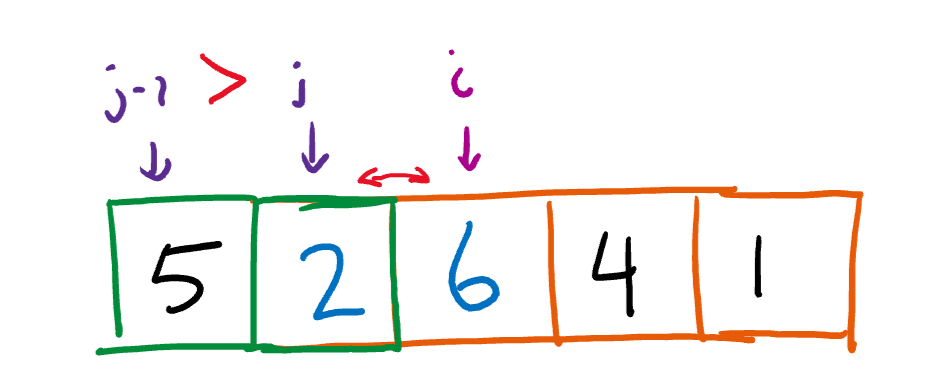 j-1 > j i
5 2 6 4 1